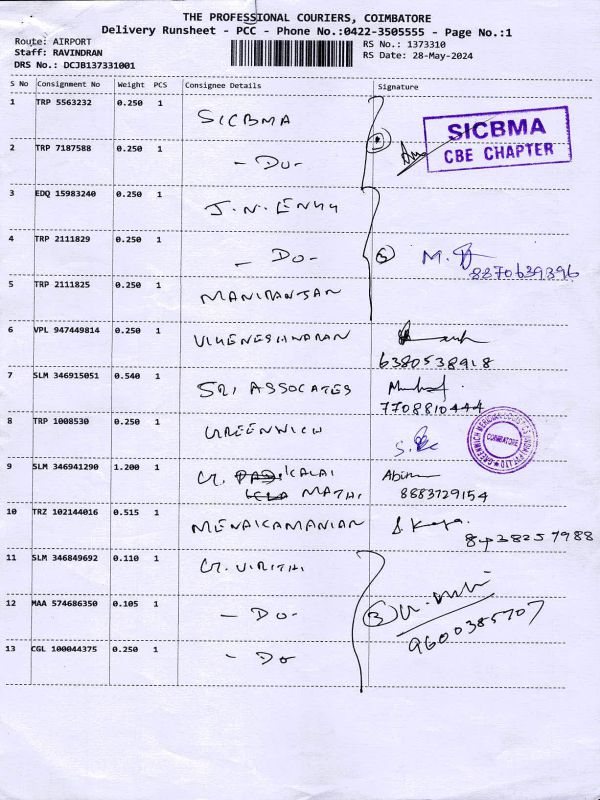 THE PROFESSIONAL COURIERS, COIMBATORE
Delivery Runsheet - PCC - Phone No.:0422-3505555 - Page No.:1
Route: AIRPORT
Staff: RAVINDRAN
DRS No.: DCJB137331001
RS No.: 1373310
RS Date: 28-May-2024
S No Consignment No Weight PCS Consignee Details Signature
1 TRP 5563232 0.250 1 SICBMA
SICBMA
CBE CHAPTER
2 TRP 7187588 0.250 1 - DO -
3 EDQ 15983240 0.250 1 J. N. ENGG
4 TRP 2111829 0.250 1 - DO - 3 M.
8870639396
5 TRP 2111825 0.250 1 MANIRANJAN
6 VPL 947449814 0.250 1 VIGNESHWARAN
6380538918
7 SLM 346915051 0.540 1 SRI ASSOCATES
7708810444
8 TRP 1008530 0.250 1 GREENWICH
COIMBATORE
9 SLM 346941290 1.200 1 G. KALAI
MATHI
8883729154
10 TRZ 102144016 0.515 1 MENAKAMANIAN
8438257988
11 SLM 346849692 0.110 1 G. VIRITHI
12 MAA 574686350 0.105 1 - DO - 3
9600385707
13 CGL 100044375 0.250 1 - DO